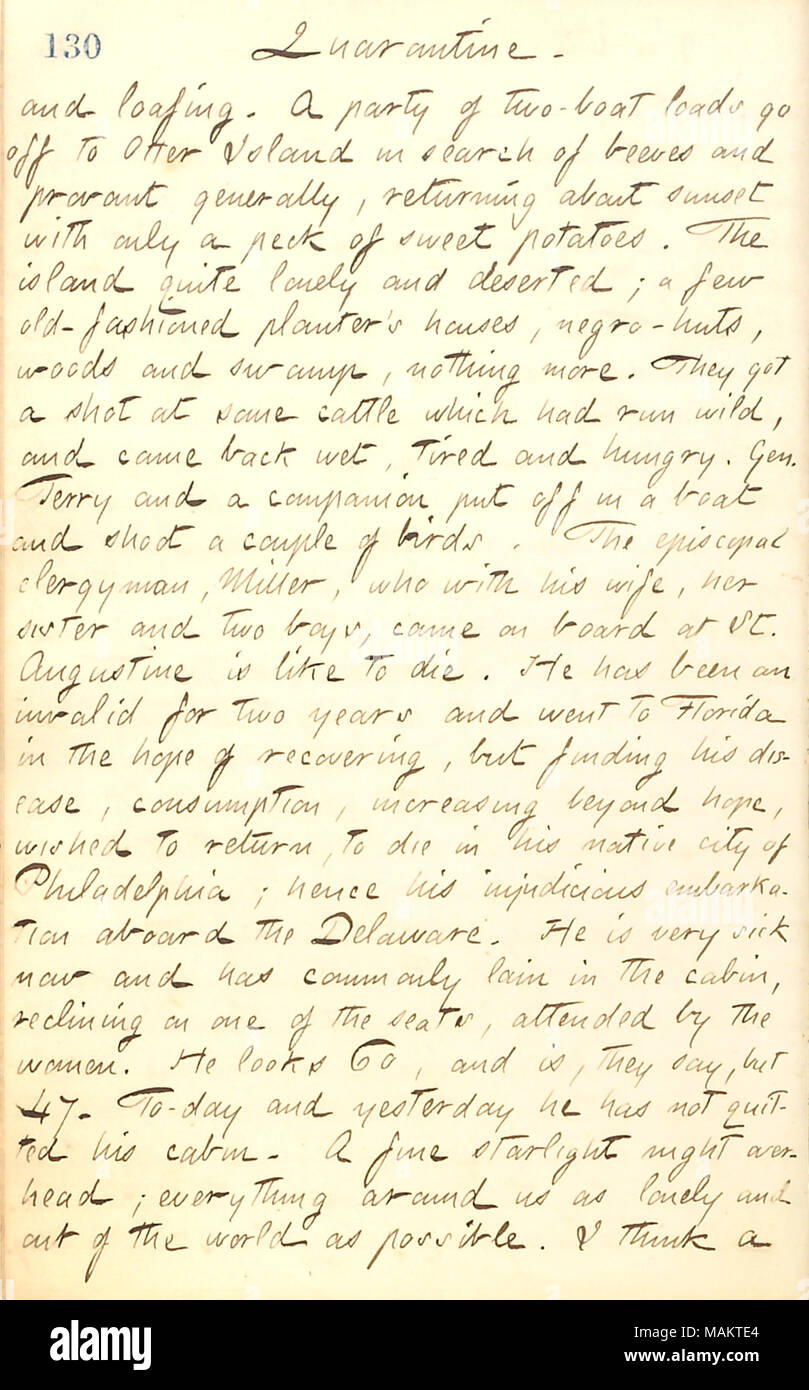 130 Quarantine.
and loafing. A party of two-boat loads go
off to Otter Island in search of beeves and
provant generally, returning about sunset
with only a peck of sweet potatoes. The
island quite lonely and deserted; a few
old-fashioned planter's houses, negro-huts,
woods and swamp, nothing more. They got
a shot at some cattle which had run wild,
and came back wet, tired and hungry. Gen.
Terry and a companion put off in a boat
and shoot a couple of birds. The episcopal
clergyman, Miller, who with his wife, her
sister and two boys, came on board at St.
Augustine is like to die. He has been an
invalid for two years and went to Florida
in the hope of recovering, but finding his dis-
ease, consumption, increasing beyond hope,
wished to return, to die in his native city of
Philadelphia; hence his injudicious embarka-
tion aboard the Delaware. He is very sick
now and has commonly lain in the cabin,
reclining on one of the seats, attended by the
women. He looks 60, and is, they say, but
47. To-day and yesterday he has not quit-
ted his cabin. A fine starlight night over-
head; everything around us as lonely and
out of the world as possible. I think a
alamy
Image ID: MAKTE4
www.alamy.com